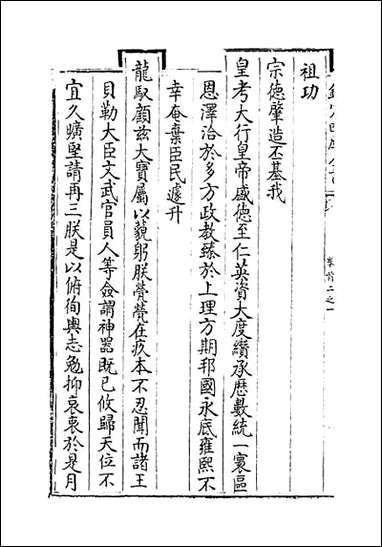 祖功
宗德肇造丕基我
皇考大行皇帝盛德至仁英資大度纘承歴數統一寰區
恩澤洽於多方政教臻於上理方期邦國永底雍熙不
幸奄棄臣民遽升
龍馭顧兹大寶屬以藐躬朕煢煢在疚本不忍聞而諸王
貝勒大臣文武官員人等僉謂神器既已攸歸天位不
宜久曠堅請再三朕是以俯徇輿志勉抑哀衷於是月